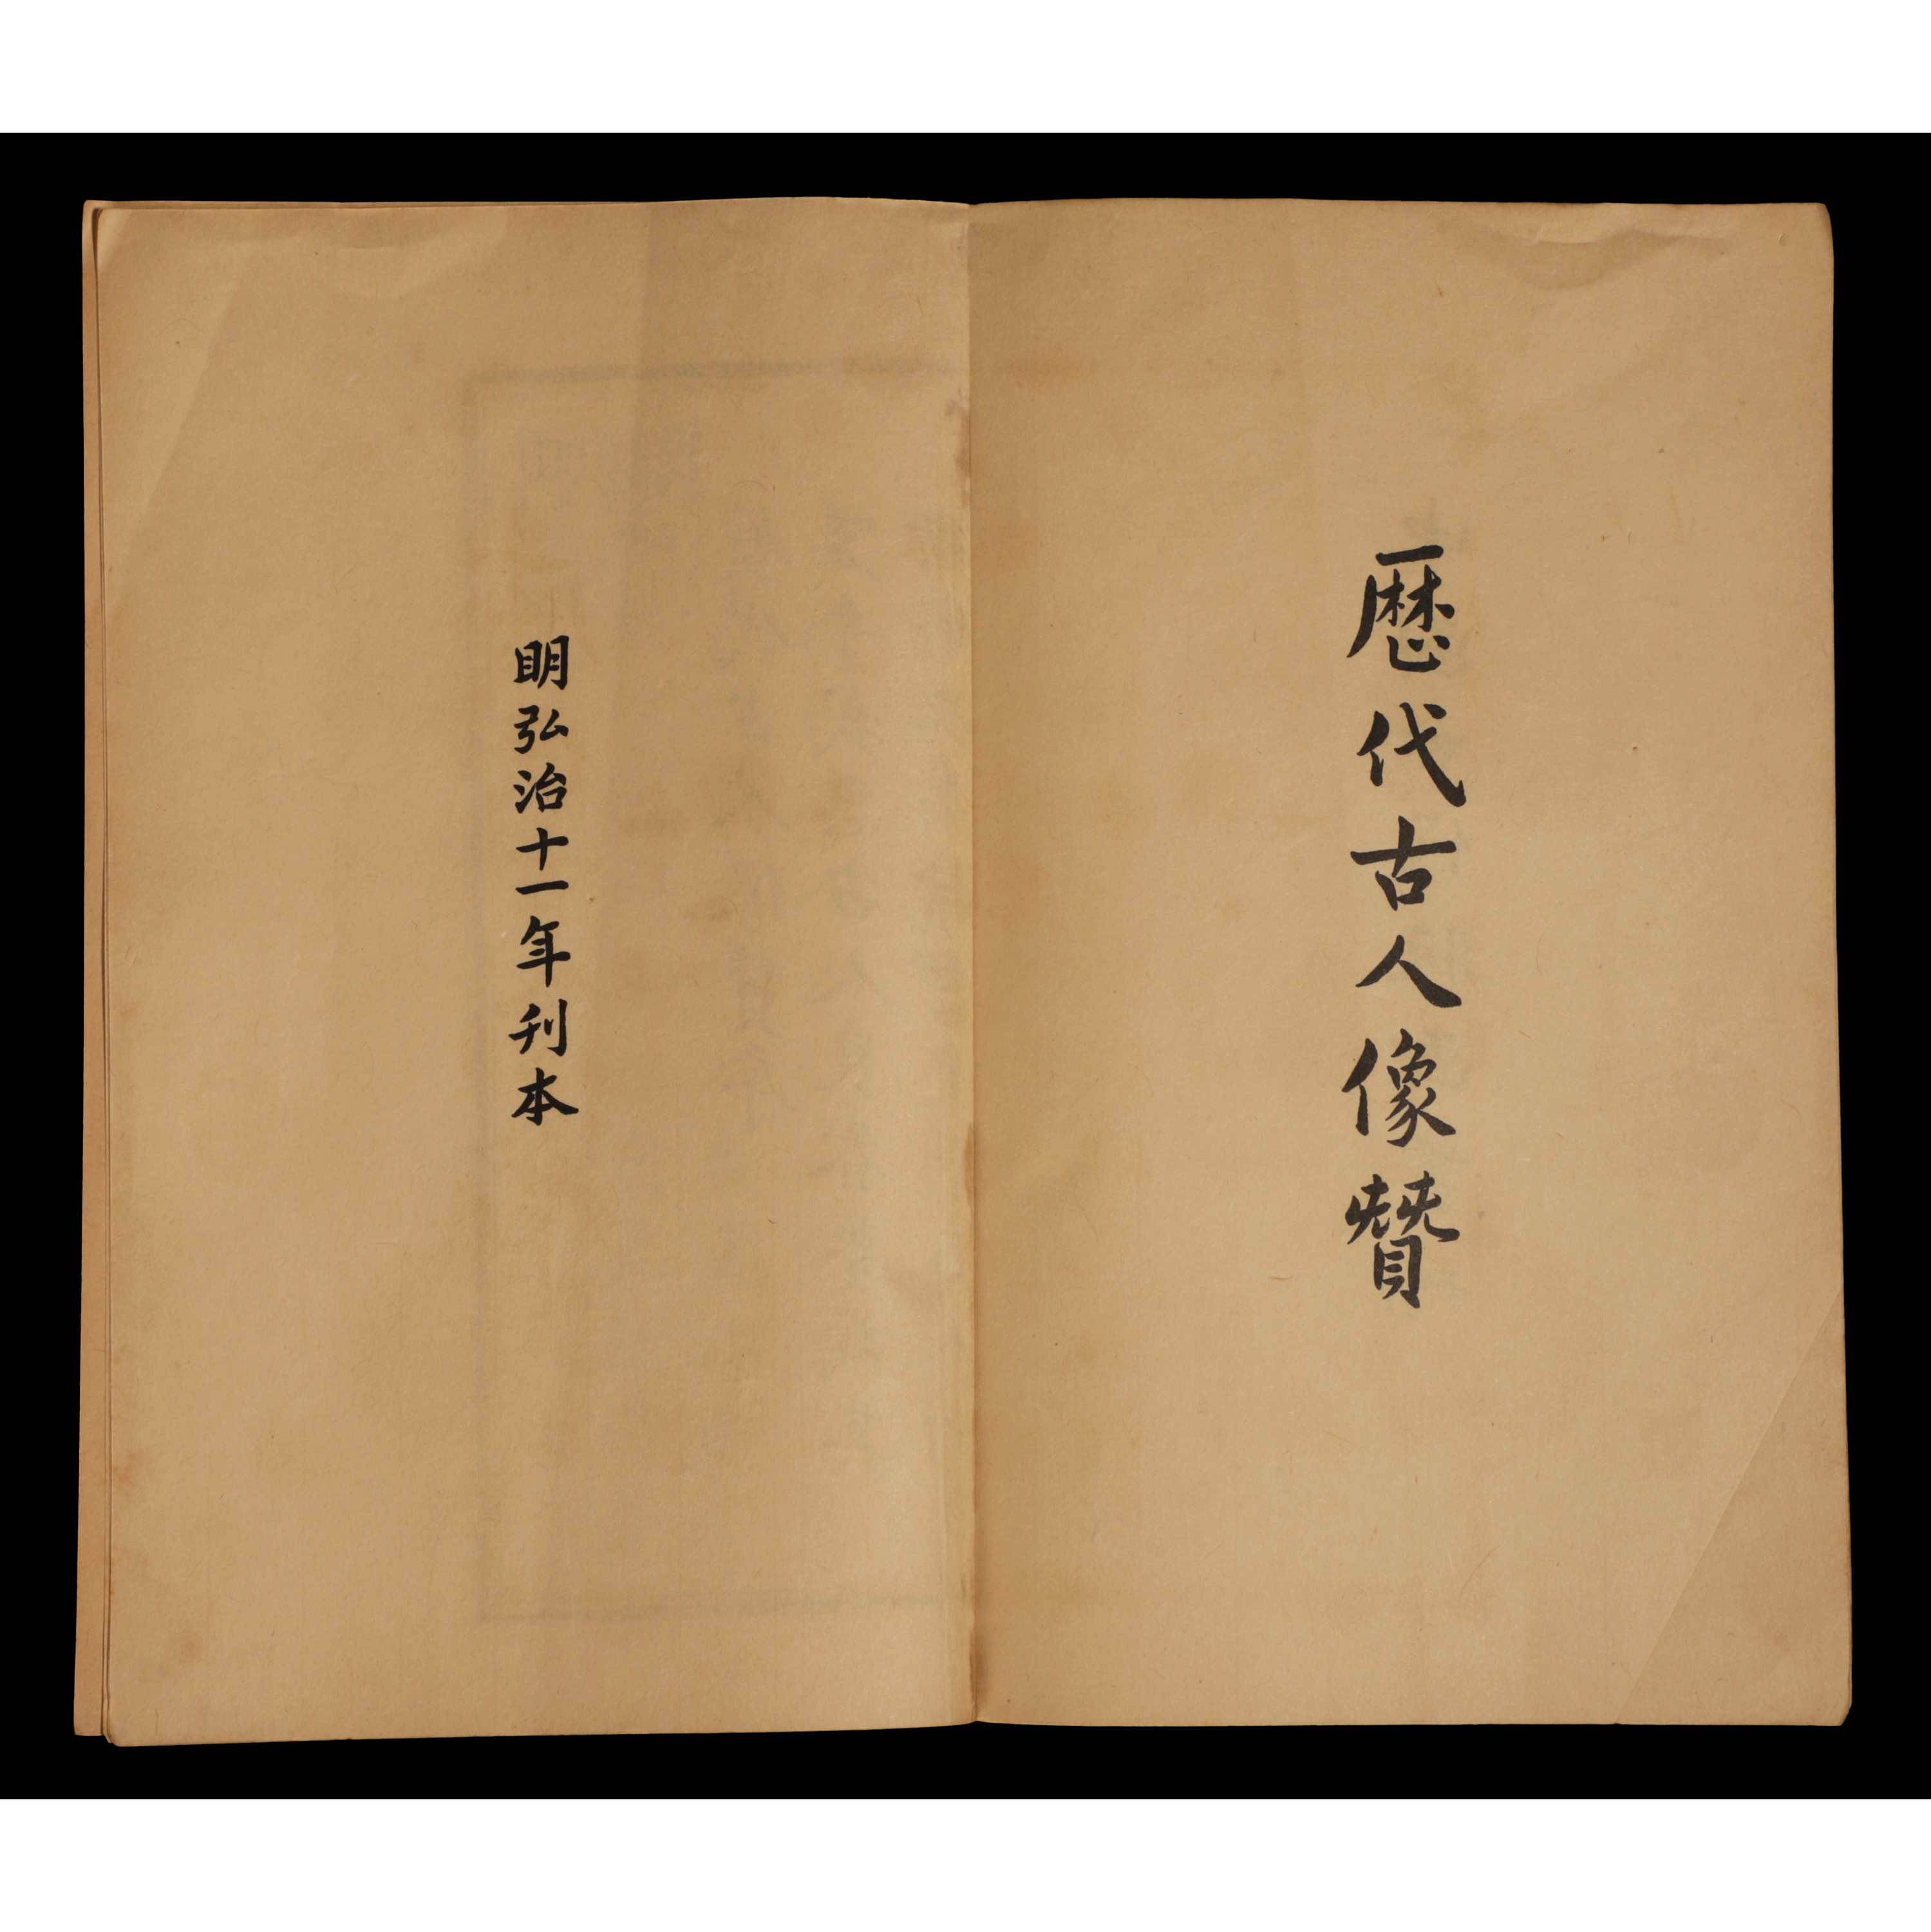 歷代古人像贊
明弘治十一年刊本